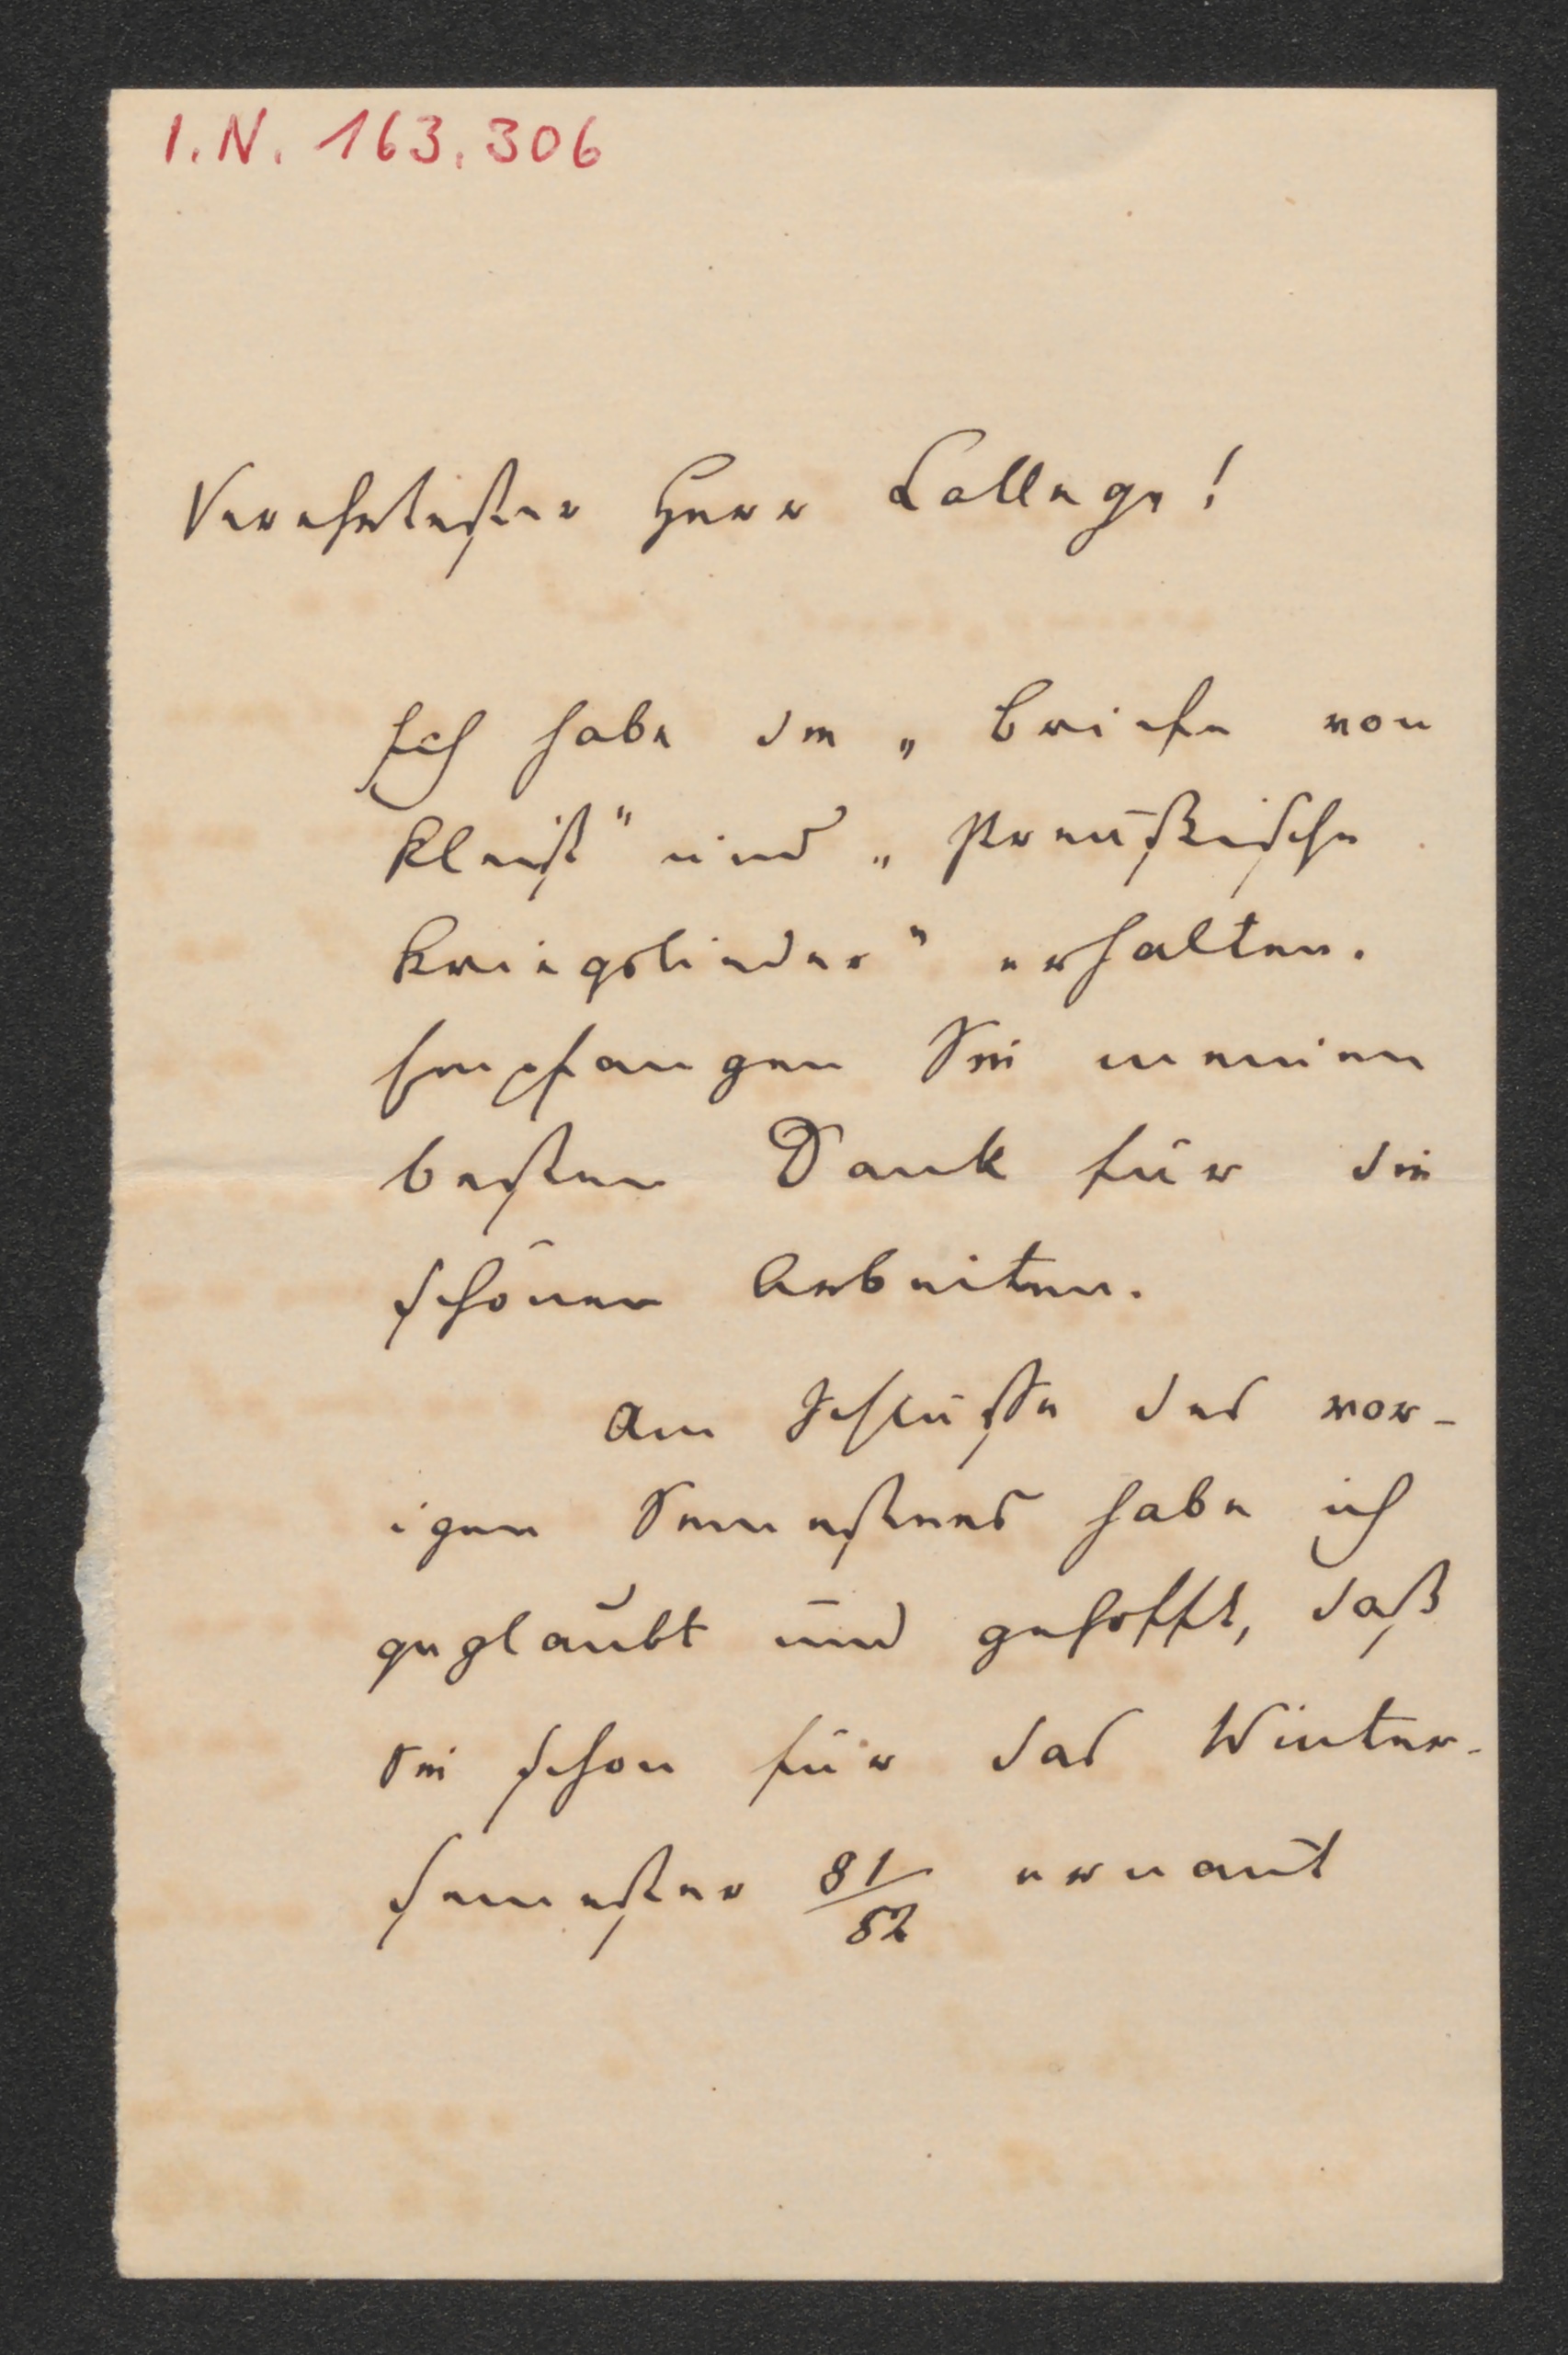 I.N. 163.306
Verehrtester Herr College!
Ich habe die „Briefe von
Kleist" und „Preußische
Kriegslieder" erhalten.
Empfangen Sie meinen
besten Dank für die
schönen Arbeiten.
Am Schlusse des vor-
igen Semesters habe ich
geglaubt und gehofft, daß
Sie schon für das Winter-
semester 81/82 ernannt